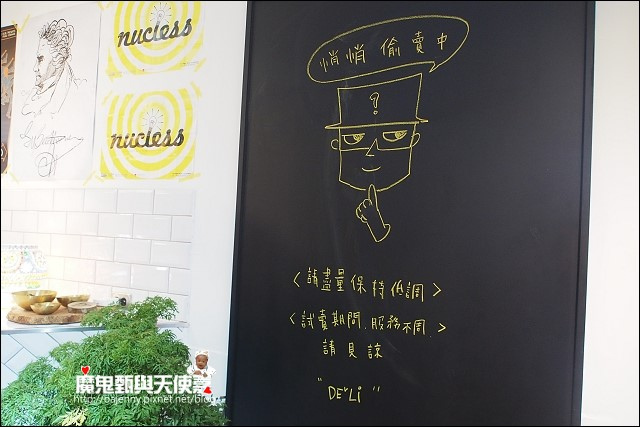 nucless
nucless
悄悄偷賣中
?
<請盡量保持低調>
<試賣期間.服務不周.>
請見諒
"DELi"
魔鬼甄與天使嘉
http://bajenny.pixnet.net/blog